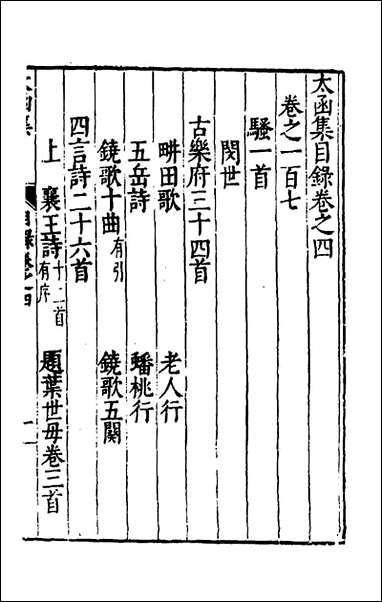 太函集目錄卷之四
卷之一百七
騷一首
閔世
古樂府三十四首
畊田歌 老人行
五岳詩 蟠桃行
鐃歌十曲有引 鐃歌五闋
四言詩二十六首
上 襄王詩十二首有序 題葉世毋卷三首
目錄卷之四